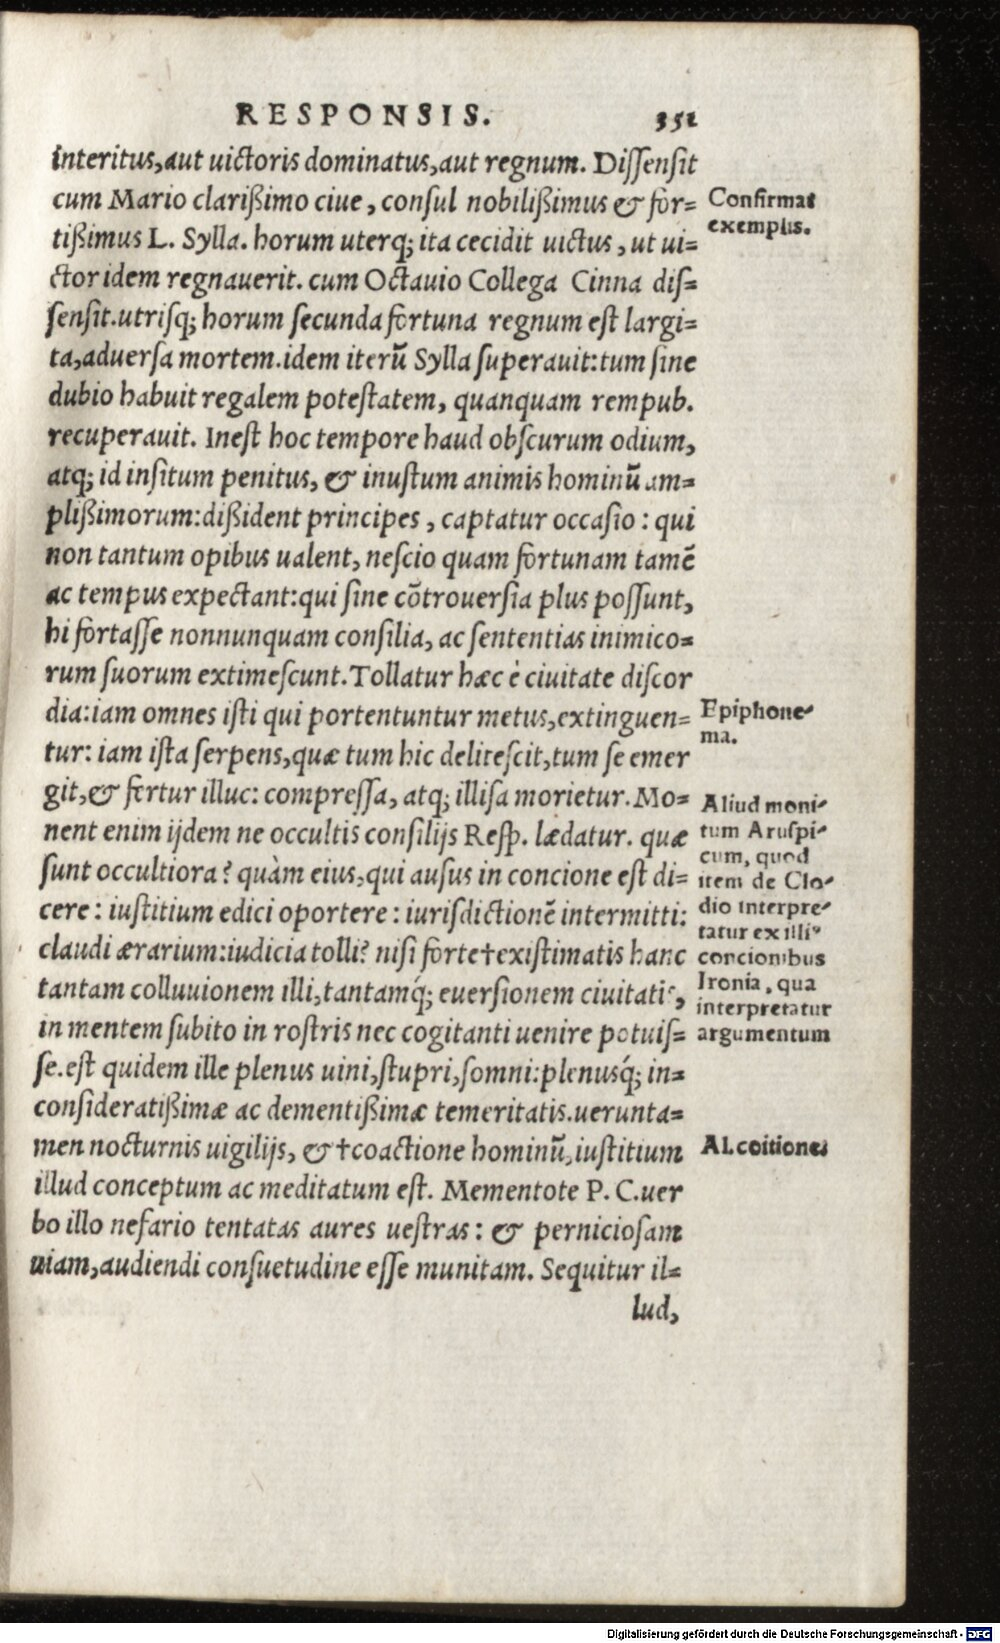 RESPONSIS. 351
interitus,aut uictoris dominatus,aut regnum. Dissensit
cum Mario clarißimo ciue, consul nobilißimus & for=
tißimus L. Sylla. horum uterq; ita cecidit uictus, ut ui=
ctor idem regnauerit. cum Octauio Collega Cinna dis=
sensit.utrisq; horum secunda fortuna regnum est largi=
ta,aduersa mortem.idem iterũ Sylla superauit:tum sine
dubio habuit regalem potestatem, quanquam rempub.
recuperauit. Inest hoc tempore haud obscurum odium,
atq; id insitum penitus, & inustum animis hominũ am=
plißimorum:dißident principes, captatur occasio: qui
non tantum opibus ualent, nescio quam fortunam tamẽ
ac tempus expectant:qui sine cõtrouersia plus possunt,
hi fortasse nonnunquam consilia, ac sententias inimico=
rum suorum extimescunt.Tollatur hæc è ciuitate discor
dia:iam omnes isti qui portentuntur metus,extinguen=
tur: iam ista serpens,quæ tum hic delitescit,tum se emer
git,& fertur illuc: compressa, atq; illisa morietur. Mo=
nent enim ijdem ne occultis consilijs Resp. lædatur. quæ
sunt occultiora? quàm eius,qui ausus in concione est di=
cere: iustitium edici oportere: iurisdictionẽ intermitti:
claudi ærarium:iudicia tolli? nisi forte†existimatis hanc
tantam colluuionem illi,tantamq́; euersionem ciuitatis,
in mentem subito in rostris nec cogitanti uenire potuis=
se.est quidem ille plenus uini,stupri,somni:plenusq́; in=
consideratißimæ ac dementißimæ temeritatis.uerunta=
men nocturnis uigilijs, & †coactione hominũ,iustitium
illud conceptum ac meditatum est. Mementote P. C.uer
bo illo nefario tentatas aures uestras: & perniciosam
uiam,audiendi consuetudine esse munitam. Sequitur il=
lud,
Confirmat
exemplis.
Epiphone-
ma.
Aliud moni-
tum Aruspi-
cum, quod
item de Clo-
dio interpre-
tatur ex illi9
concionibus
Ironia, qua
interpretatur
argumentum
Al. coitiones
Digitalisierung gefördert durch die Deutsche Forschungsgemeinschaft - DFG